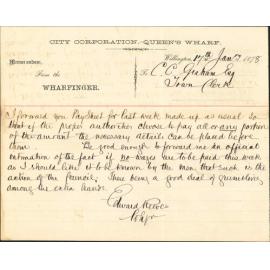 CITY CORPORATION-QUEEN'S WHARF.
Memorandum. Wellington, 17th Jany 1878
From the To C. C. Graham Esq
WHARFINGER. Town Clerk
I forward you Pay Sheet for last week made up as usual so
that if the proper authorities choose to pay all or any portion
of the amount the necessary details can be placed before
them. Be good enough to forward me an official
intimation of the fact if no wages are to be paid this week
as I should like it to be known by the men that such is the
action of the Council, there being a good deal of
among the extra hands.
Edward